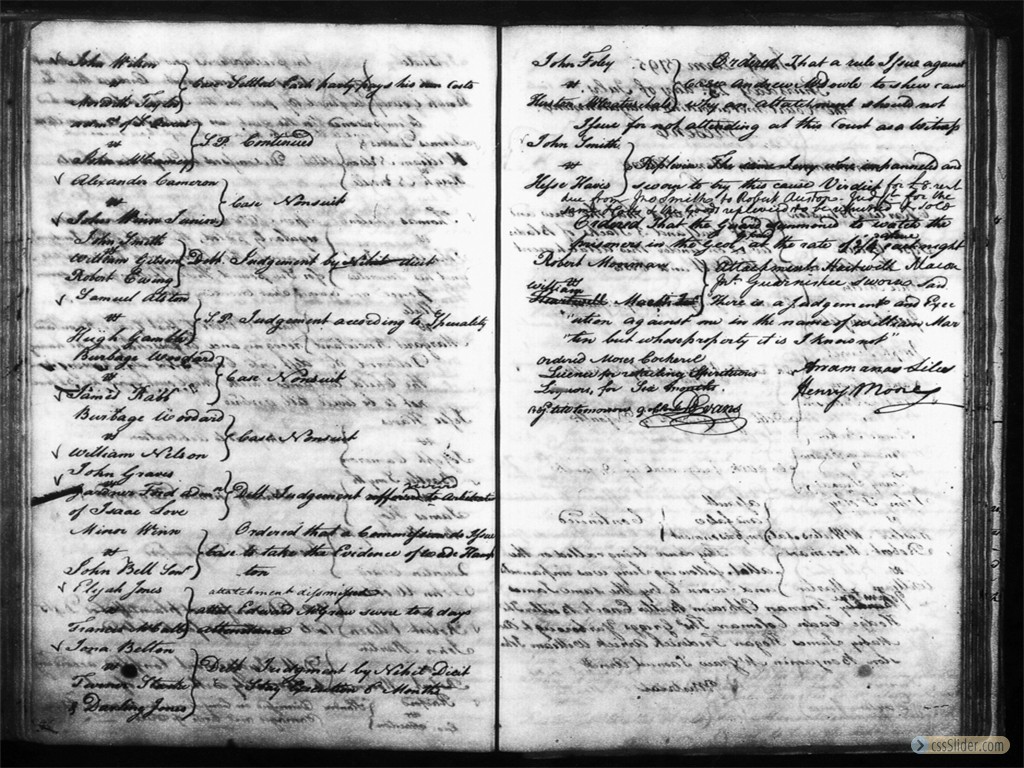 John Wilson
vs
Meredith Taylor
Case Settled Each party pays his own Costs
vs
John McCaney
S.P. Continued
Alexander Cameron
vs
John Winn Junior
Case Nonsuit
John Smith
William Gibson
Robert Ewing
Debt Judgement by Nihil dicit
Samuel Alston
vs
Hugh Gamble
S.P. Judgement according to Speciality
Burbage Woodard
vs
James Rabb
Case Nonsuit
Burbage Woodard
vs
William Nelson
Case Nonsuit
John Graves
vs
Gardner Ford admr
of Isaac Love
Debt Judgement
Minor Winn
vs
John Bell Senr
Ordered that a Commission do Issue
Case to take the Evidence of Wade Hamp
ton
Elijah Jones
vs
Francis McCall
attachment dismissed
attest Edward McGraw swore to 4 days
attendance
Jona Belton
vs
& Darling Jones
Debt Judgement by Nihil Dicit
Stay Execution 6 Months
John Foley
vs
Ordered That a rule Issue against
Andrew McDowle to shew cause
why an attatchment should not
Issue for not attending at this Court as a Witness
John Smith
vs
Hesse Havis
Replevin The same Jury were impanneled and
sworn to try this cause Verdict for rent
due from Jno Smith to Robert Auston. Judgt. for the
Ordered That the Guard summond to watch the
prisoners in the Geol, at the rate of each night
Robert Moreman
vs
William
Martin
Attachment Hartwith Macon
Jr. Guarnishee sworn Said
There is a Judgement and Exec
"ution against me in the name of William Mar
"tin but whose property it is I know not"
Ordered Moses Cockeril
Licence for retailing Spirituous
Liquors, for Six Months
Arramanos Liles
Henry Moore
Evans
cssSlider.com